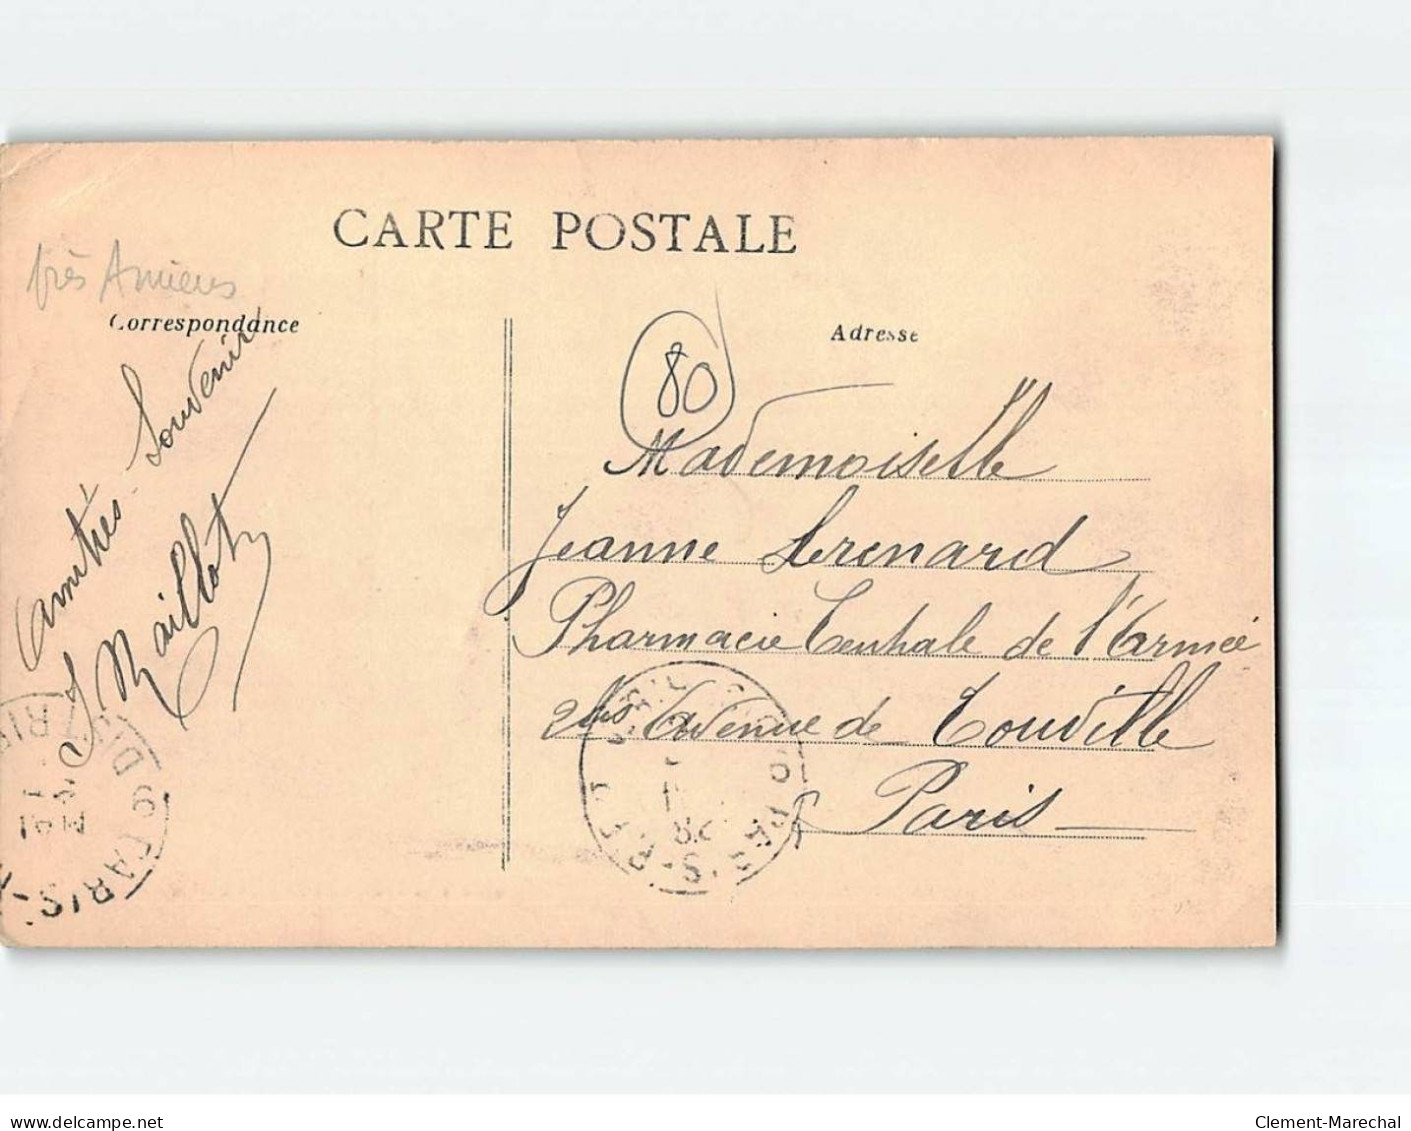 CARTE POSTALE
près Amiens
Correspondance
Adresse
80
amitiés Souvenir
Maillot
Mademoiselle
Jeanne
Pharmacie Centrale de l'Armée
2bis Avenue de Tourville
Paris
PARIS
DISTRIB
delcampe.net
Clement-Marechal